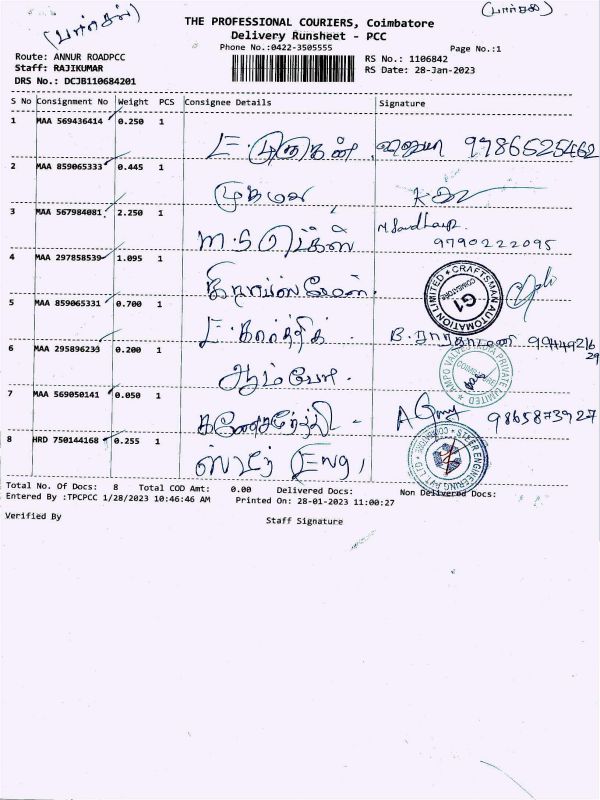 (பார்சல்)
(பார்சல்)
THE PROFESSIONAL COURIERS, Coimbatore
Delivery Runsheet - PCC
Phone No.:0422-3505555
Page No.:1
Route: ANNUR ROADPCC
RS No.: 1106842
Staff: RAJIKUMAR
RS Date: 28-Jan-2023
DRS No.: DCJB110684201
S No Consignment No Weight PCS Consignee Details Signature
1 MAA 569436414 0.250 1
E. முருகன் 9786525462
2 MAA 859065333 0.445 1
3 MAA 567984081 2.250 1
M.S
9790222095
4 MAA 297858539 1.095 1
CRAFTSMAN AUTOMATION LIMITED COIMBATORE G1
5 MAA 859065331 0.700 1
E. கார்த்திக் B.
6 MAA 295896233 0.200 1
ஆம்போ.
AMPO VALVES INDIA PRIVATE LIMITED COIMBATORE
7 MAA 569050141 0.050 1
9865873927
8 HRD 750144168 0.255 1
Eng,
Total No. Of Docs: 8 Total COD Amt: 0.00 Delivered Docs: Non Delivered Docs:
Entered By :TPCPCC 1/28/2023 10:46:46 AM Printed On: 28-01-2023 11:00:27
Verified By
Staff Signature